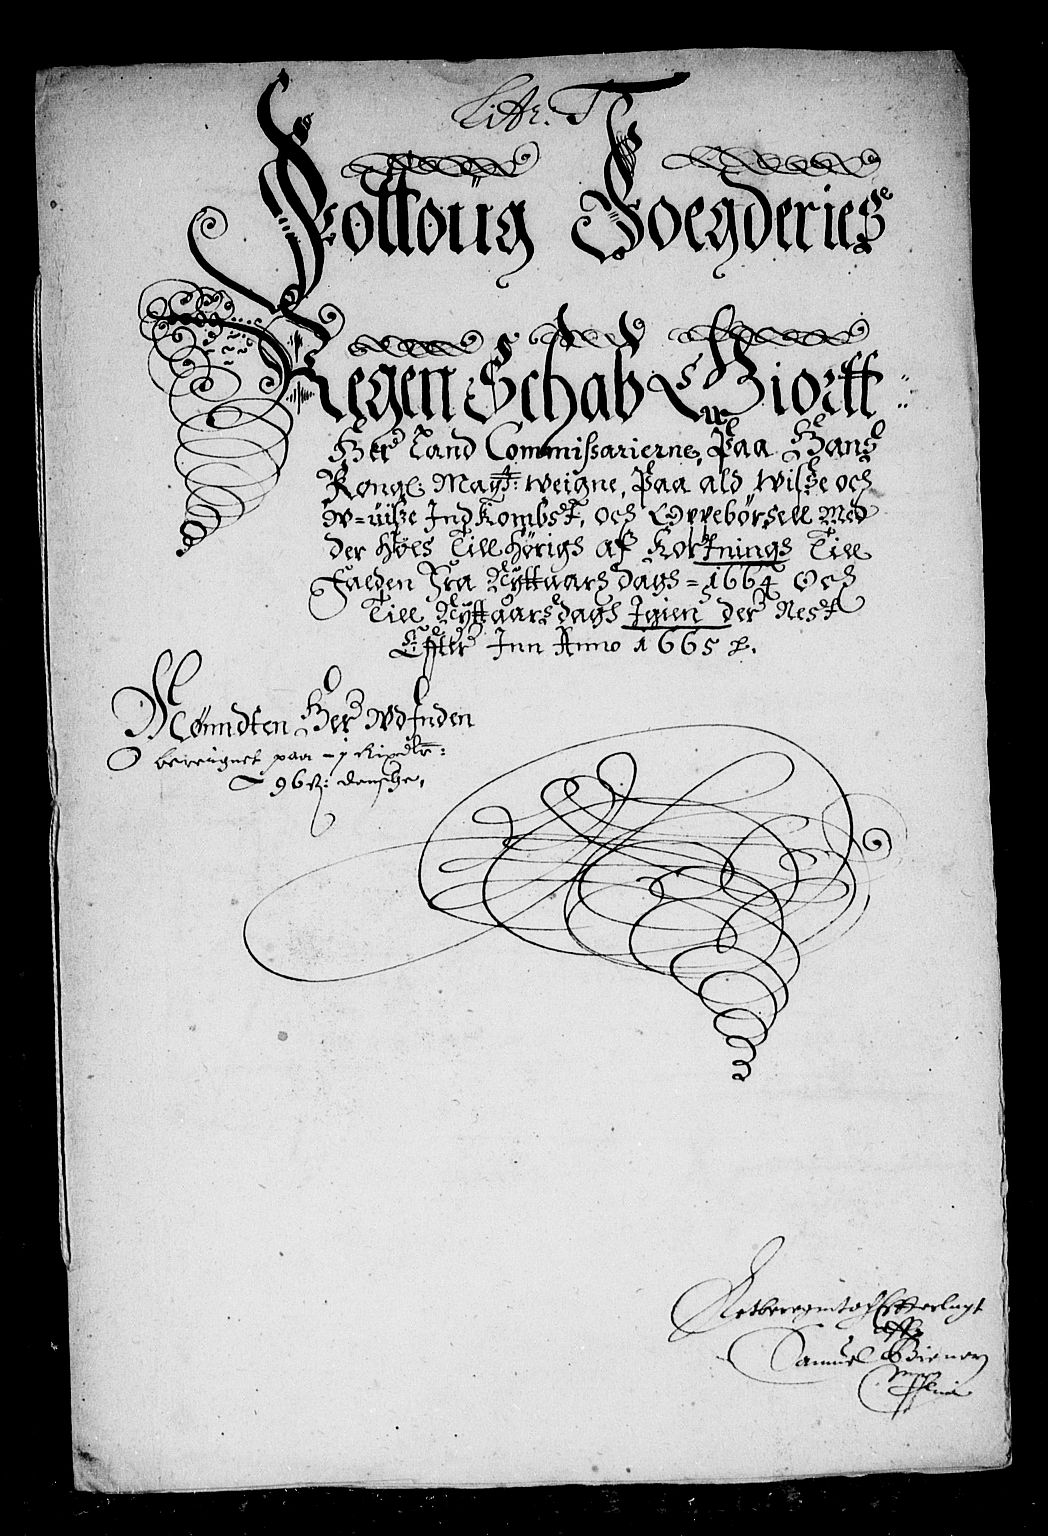 Litr. T
Folloug Foegderies
RegenSchab Giortt
for Land Commissarierne, Paa Hans
Kongl: Mayt: weigne, Paa ald wisse och
W=uisse Indkombst, och Oppebörsell Med
der hoes Till hörigs af Kortnings Till
Falden Fra Nyttaars dags = 1664 Och
Till Nyttaarsdags Igien der Nest
Effter Inn Anno 1665
Mønndten Her Udinden
bereignet paa - j Rixdlr:
96 ß: danshe,
Retberegnet och Efterlagt
aff
Samuel